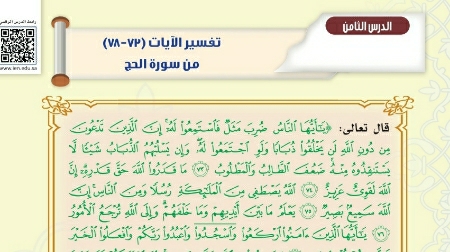 رابط الدرس الرقمي
www.ien.edu.sa
الدرس الثامن
تفسير الآيات (٧٣-٧٨)
من سورة الحج
قال تعالى: ﴿يَٰٓأَيُّهَا ٱلنَّاسُ ضُرِبَ مَثَلٞ فَٱسۡتَمِعُواْ لَهُۥٓۚ إِنَّ ٱلَّذِينَ تَدۡعُونَ
مِن دُونِ ٱللَّهِ لَن يَخۡلُقُواْ ذُبَابٗا وَلَوِ ٱجۡتَمَعُواْ لَهُۥۖ وَإِن يَسۡلُبۡهُمُ ٱلذُّبَابُ شَيۡـٔٗا لَّا
يَسۡتَنقِذُوهُ مِنۡهُۚ ضَعُفَ ٱلطَّالِبُ وَٱلۡمَطۡلُوبُ ٧٣ مَا قَدَرُواْ ٱللَّهَ حَقَّ قَدۡرِهِۦٓۚ إِنَّ
ٱللَّهَ لَقَوِيٌّ عَزِيزٌ ٧٤ ٱللَّهُ يَصۡطَفِي مِنَ ٱلۡمَلَٰٓئِكَةِ رُسُلٗا وَمِنَ ٱلنَّاسِۚ إِنَّ
ٱللَّهَ سَمِيعُۢ بَصِيرٞ ٧٥ يَعۡلَمُ مَا بَيۡنَ أَيۡدِيهِمۡ وَمَا خَلۡفَهُمۡۚ وَإِلَى ٱللَّهِ تُرۡجَعُ ٱلۡأُمُورُ
٧٦ يَٰٓأَيُّهَا ٱلَّذِينَ ءَامَنُواْ ٱرۡكَعُواْ وَٱسۡجُدُواْۤ وَٱعۡبُدُواْ رَبَّكُمۡ وَٱفۡعَلُواْ ٱلۡخَيۡرَ